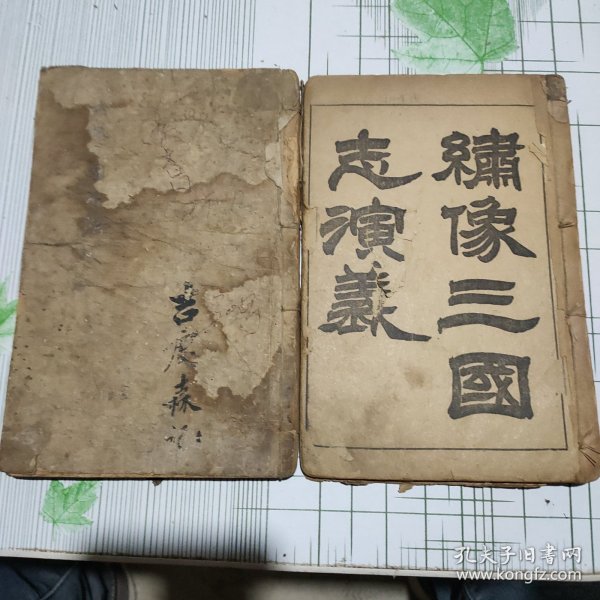 繡像三國
志演義
吉慶森
孔夫子旧书网
www.kongfz.com